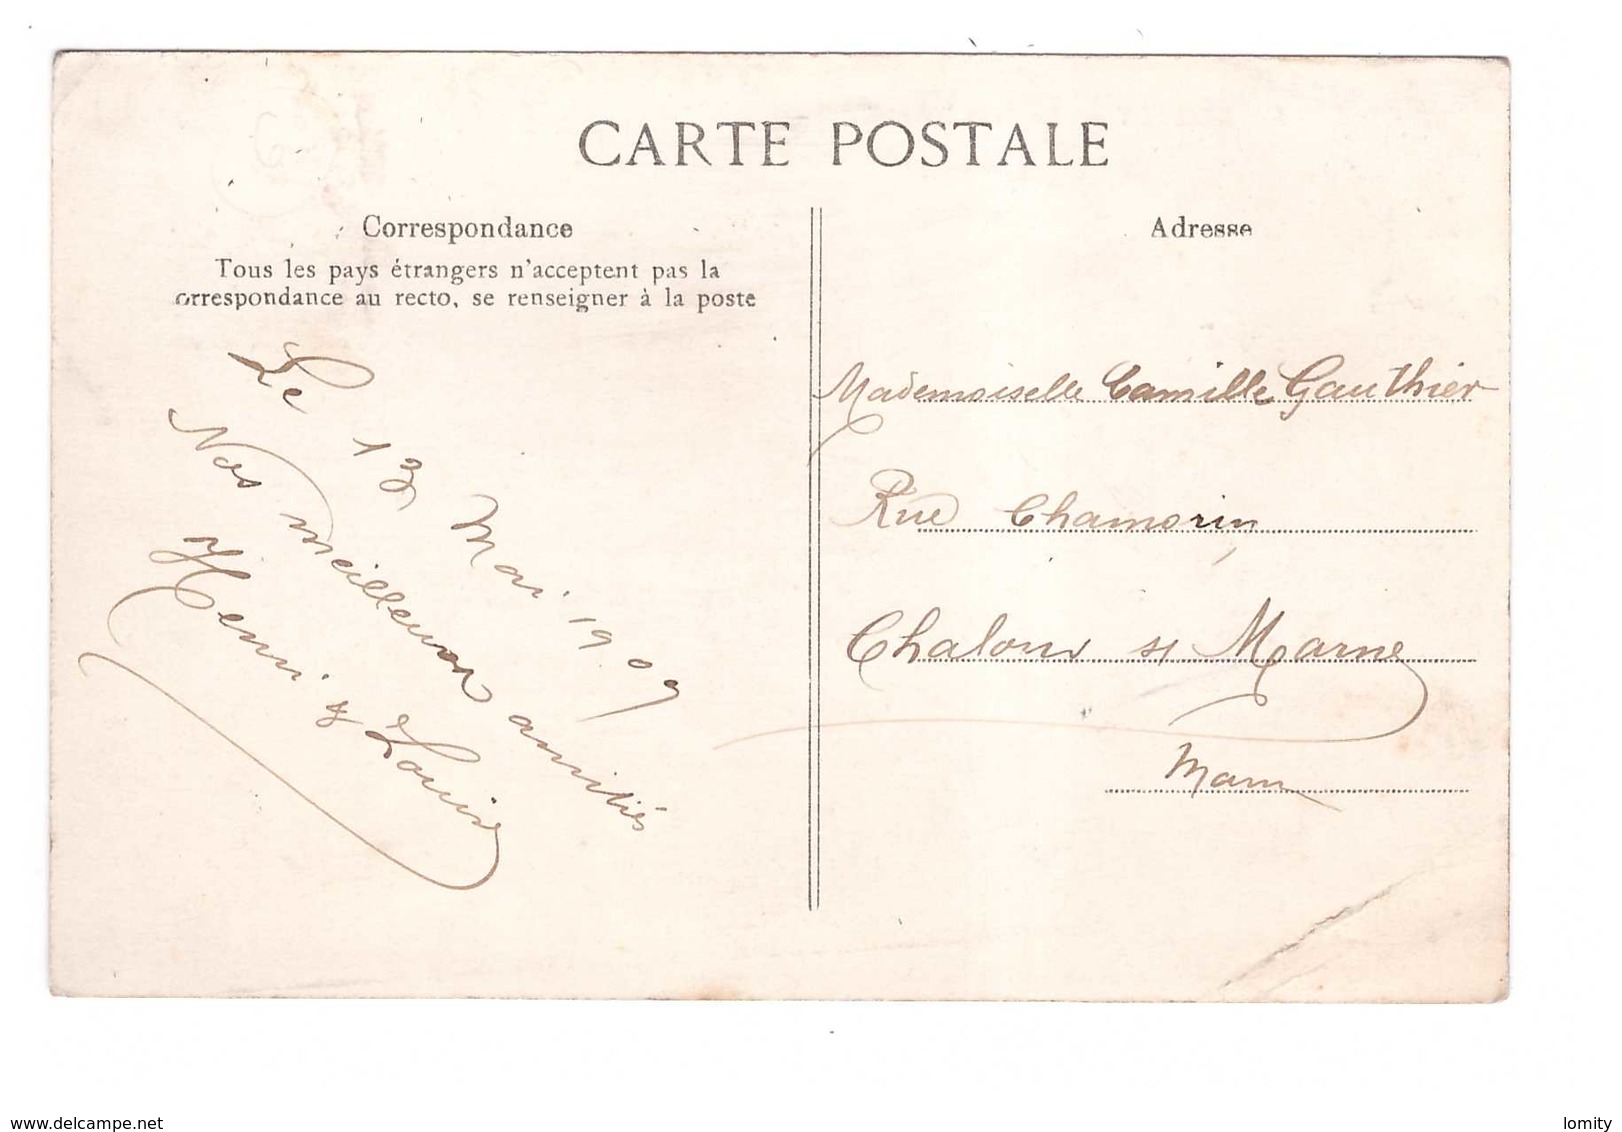 CARTE POSTALE
Correspondance
Tous les pays étrangers n'acceptent pas la
orrespondance au recto, se renseigner à la poste
Le 13 Mai 1909
Nos meilleures amitiés
Henri & Louise
Adresse
Mademoiselle Camille Gauthier
Rue Chamorin
Chalons s/ Marne
Marne
www.delcampe.net
lomity